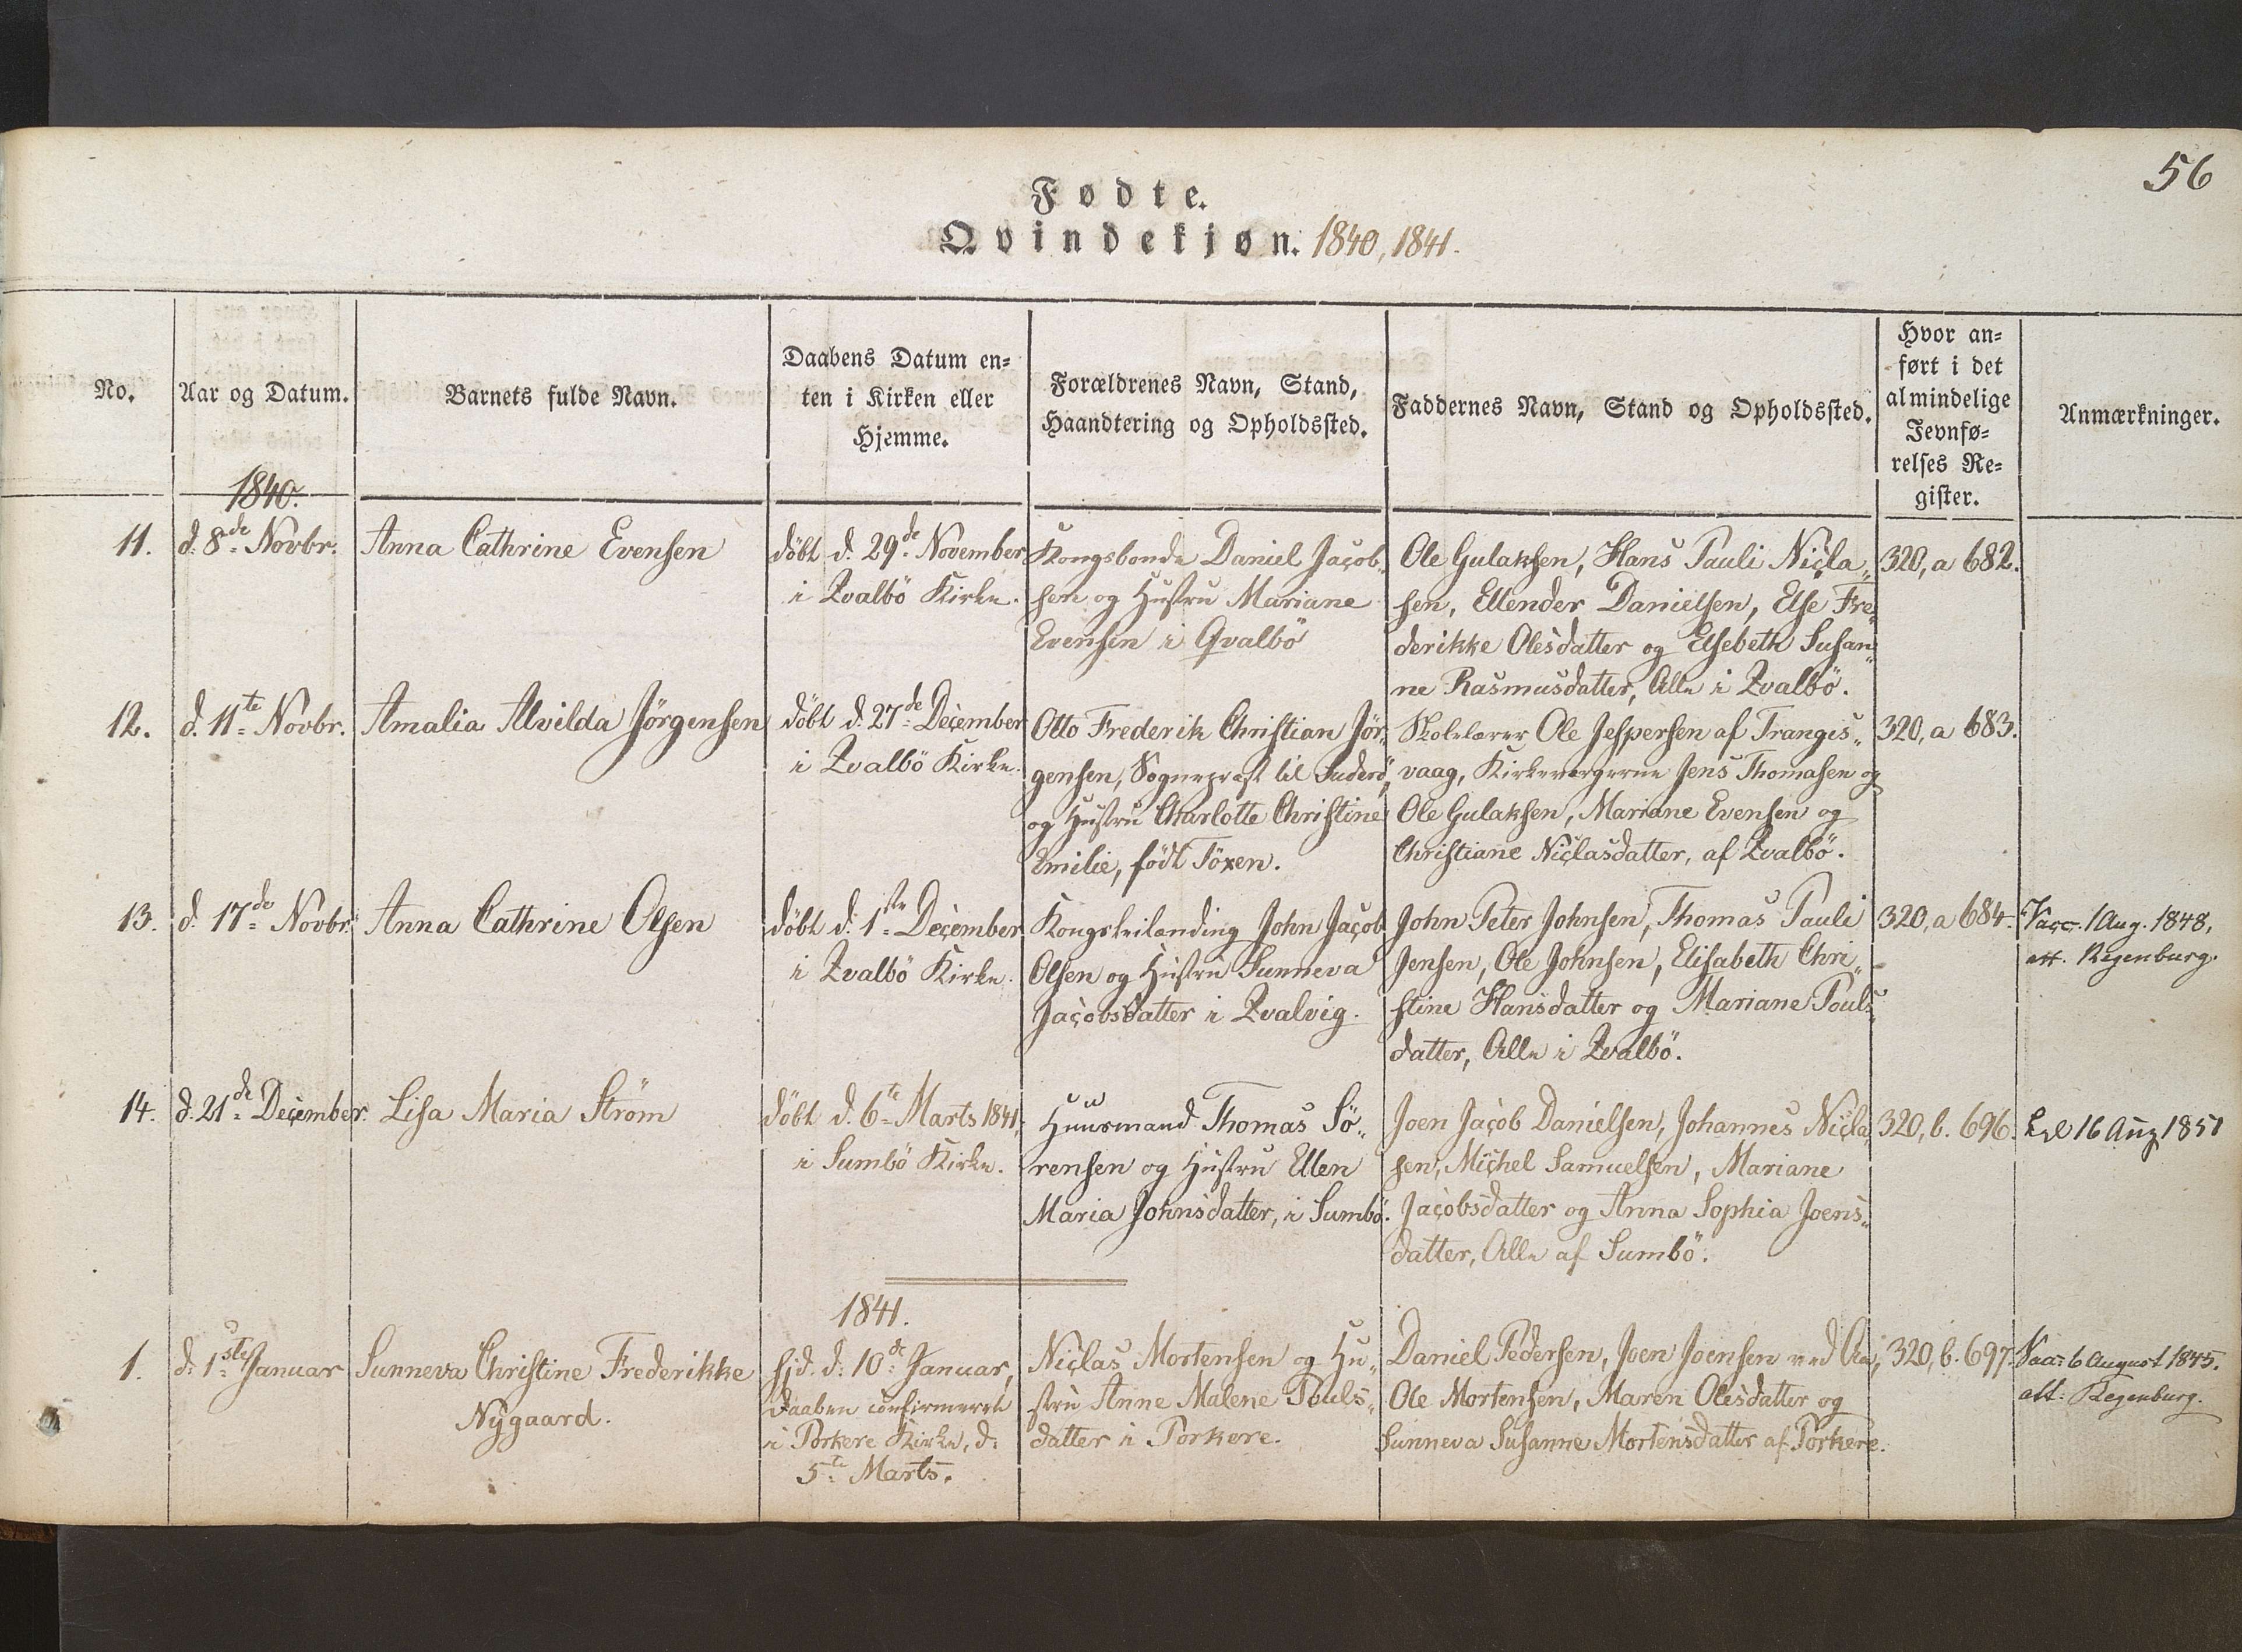 56
Fødte.
Qvindekjøn. 1840, 1841.
No.
Aar og Datum.
Barnets fulde Navn.
Daabens Datum en=
ten i Kirken eller
Hjemme.
Forældrenes Navn, Stand,
Haandtering og Opholdssted.
Faddernes Navn, Stand og Opholdssted.
Hvor an=
ført i det
almindelige
Jevnfø=
relses Re=
gister.
Anmærkninger.
1840.
11.
d: 8de Novbr:
Anna Cathrine Evensen
døbt d: 29de November
i Qvalbö Kirke.
Kongsbonde Daniel Jacob„
sen og Hustru Mariane
Evensen i Qvalbö
Ole Gulaksen, Hans Pauli Nicla„
sen, Ellender Danielsen, Else Fre„
derikke Olesdatter og Elsebeth Susan„
ne Rasmusdatter, Alle i Qvalbö.
320, a 682.
12.
d. 11te Novbr.
Amalia Alvilda Jörgensen
döbt d: 27de December
i Qvalbö Kirke.
Otto Frederik Christian Jör„
gensen, Sognepræst til Suderö,
og Hustru Charlotte Christine
Emilie, födt Töxen.
Skolelærer Ole Jespersen af Trangis„
vaag, Kirkeværgerne Jens Thomasen og
Ole Gulaksen, Mariane Evensen og
Christiane Niclasdatter, af Qvalbö.
320, a 683.
13.
d. 17de Novbr:
Anna Cathrine Olsen
döbt d: 1ste December
i Qvalbö Kirke.
Kongsleilænding John Jacob
Olsen og Hustru Sunneva
Jacobsdatter i Qvalvig.
John Peter Johnsen, Thomas Pauli
Jensen, Ole Johnsen, Elisabeth Chri„
stine Hansdatter og Mariane Pouls„
datter, Alle i Qvalbö.
320, a 684.
Vacc. 1 Aug. 1848,
att. Regenburg.
14.
d. 21de December.
Lisa Maria Ström
döbt d. 6te Marts 1841,
i Sumbö Kirke.
Huusmand Thomas Sö„
rensen og Hustru Ellen
Maria Johnsdatter, i Sumbö.
Joen Jacob Danielsen, Johannes Nicla„
sen, Michel Samuelsen, Mariane
Jacobsdatter og Anna Sophia Joens„
datter, Alle af Sumbö.
320, b. 696.
16 Aug 1851
1841.
1.
d: 1ste Januar
Sunneva Christine Frederikke
Nygaard.
hjd. d: 10de Januar,
Daaben confirmeret
i Porkere Kirke, d:
5te Marts.
Niclas Mortensen og Hu„
stru Anne Malene Pouls„
datter i Porkere.
Daniel Pedersen, Joen Joensen ved Aa,
Ole Mortensen, Maren Olesdatter og
Sunneva Susanne Mortensdatter af Porkere.
320, b. 697.
Vac: 6 August 1845.
att: Regenburg.